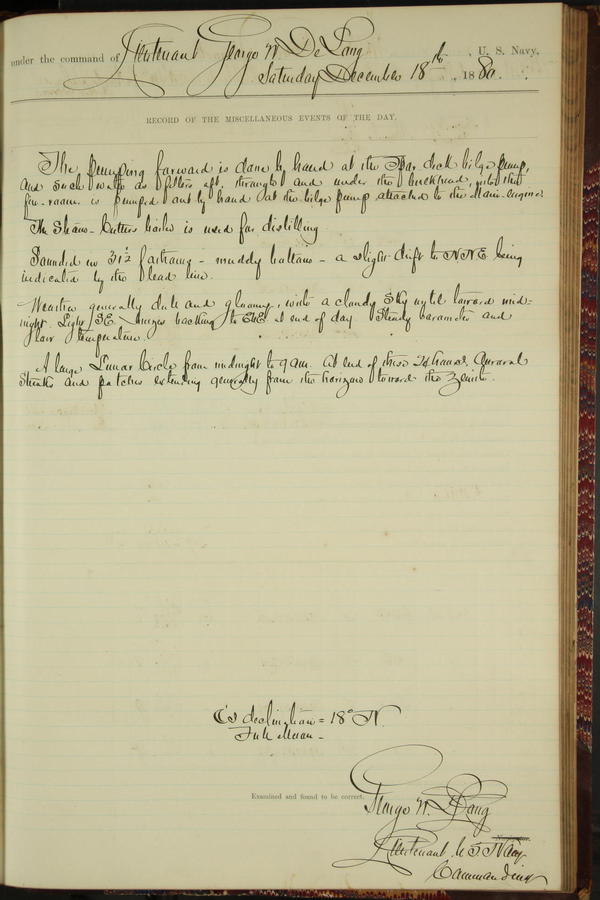 under the command of Lieutenant George W. De Long, U. S. Navy.
Saturday December 18th, 1880.
RECORD OF THE MISCELLANEOUS EVENTS OF THE DAY.
The pumping forward is done by hand at the Spar deck bilge pump,
and such water as filters aft, through and under the bulkhead, into the
fire-room is pumped out by hand at the bilge pump attached to the Main engine
The Steam-Cutters boiler is used for distilling.
Sounded in 31½ fathoms - muddy bottom - a slight drift to NNE being
indicated by the lead line.
Weather generally dull and gloomy, with a cloudy sky until toward mid=
night. Light SE breezes backing to ESE at end of day. Steady barometer and
temperature.
A large Lunar Circle from midnight to 9 am. At end of these 24 hours Auroral
Streaks and patches extending generally from the horizon toward the Zenith.
☾'s declination = 18° N.
Full Moon -
Examined and found to be correct.
George W. De Long
Lieutenant U S Navy
Commanding